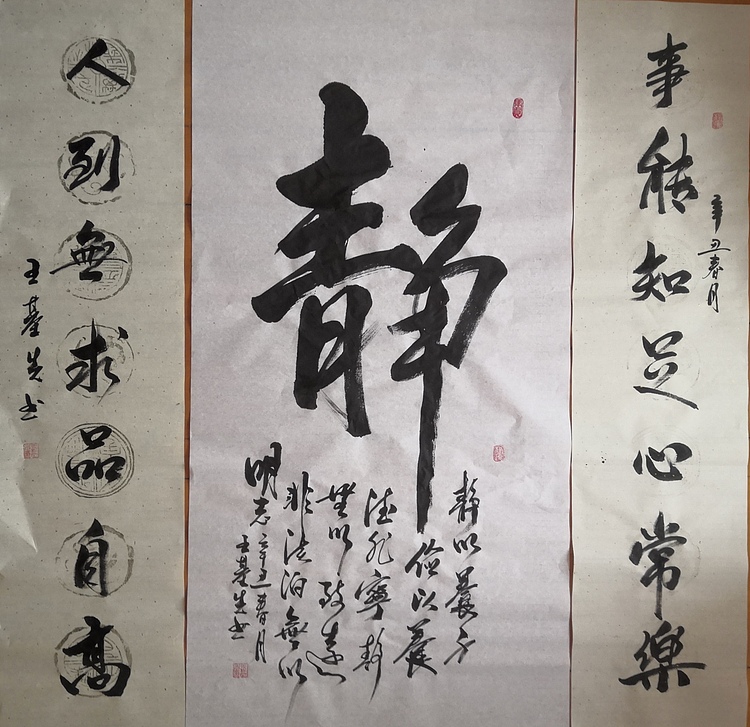 事能知足心常樂
辛丑春月
静
静以養身
儉以養
德非寧静
無以致遠
非淡泊無以
明志辛丑春月
王基先书
人到無求品自高
王基先书